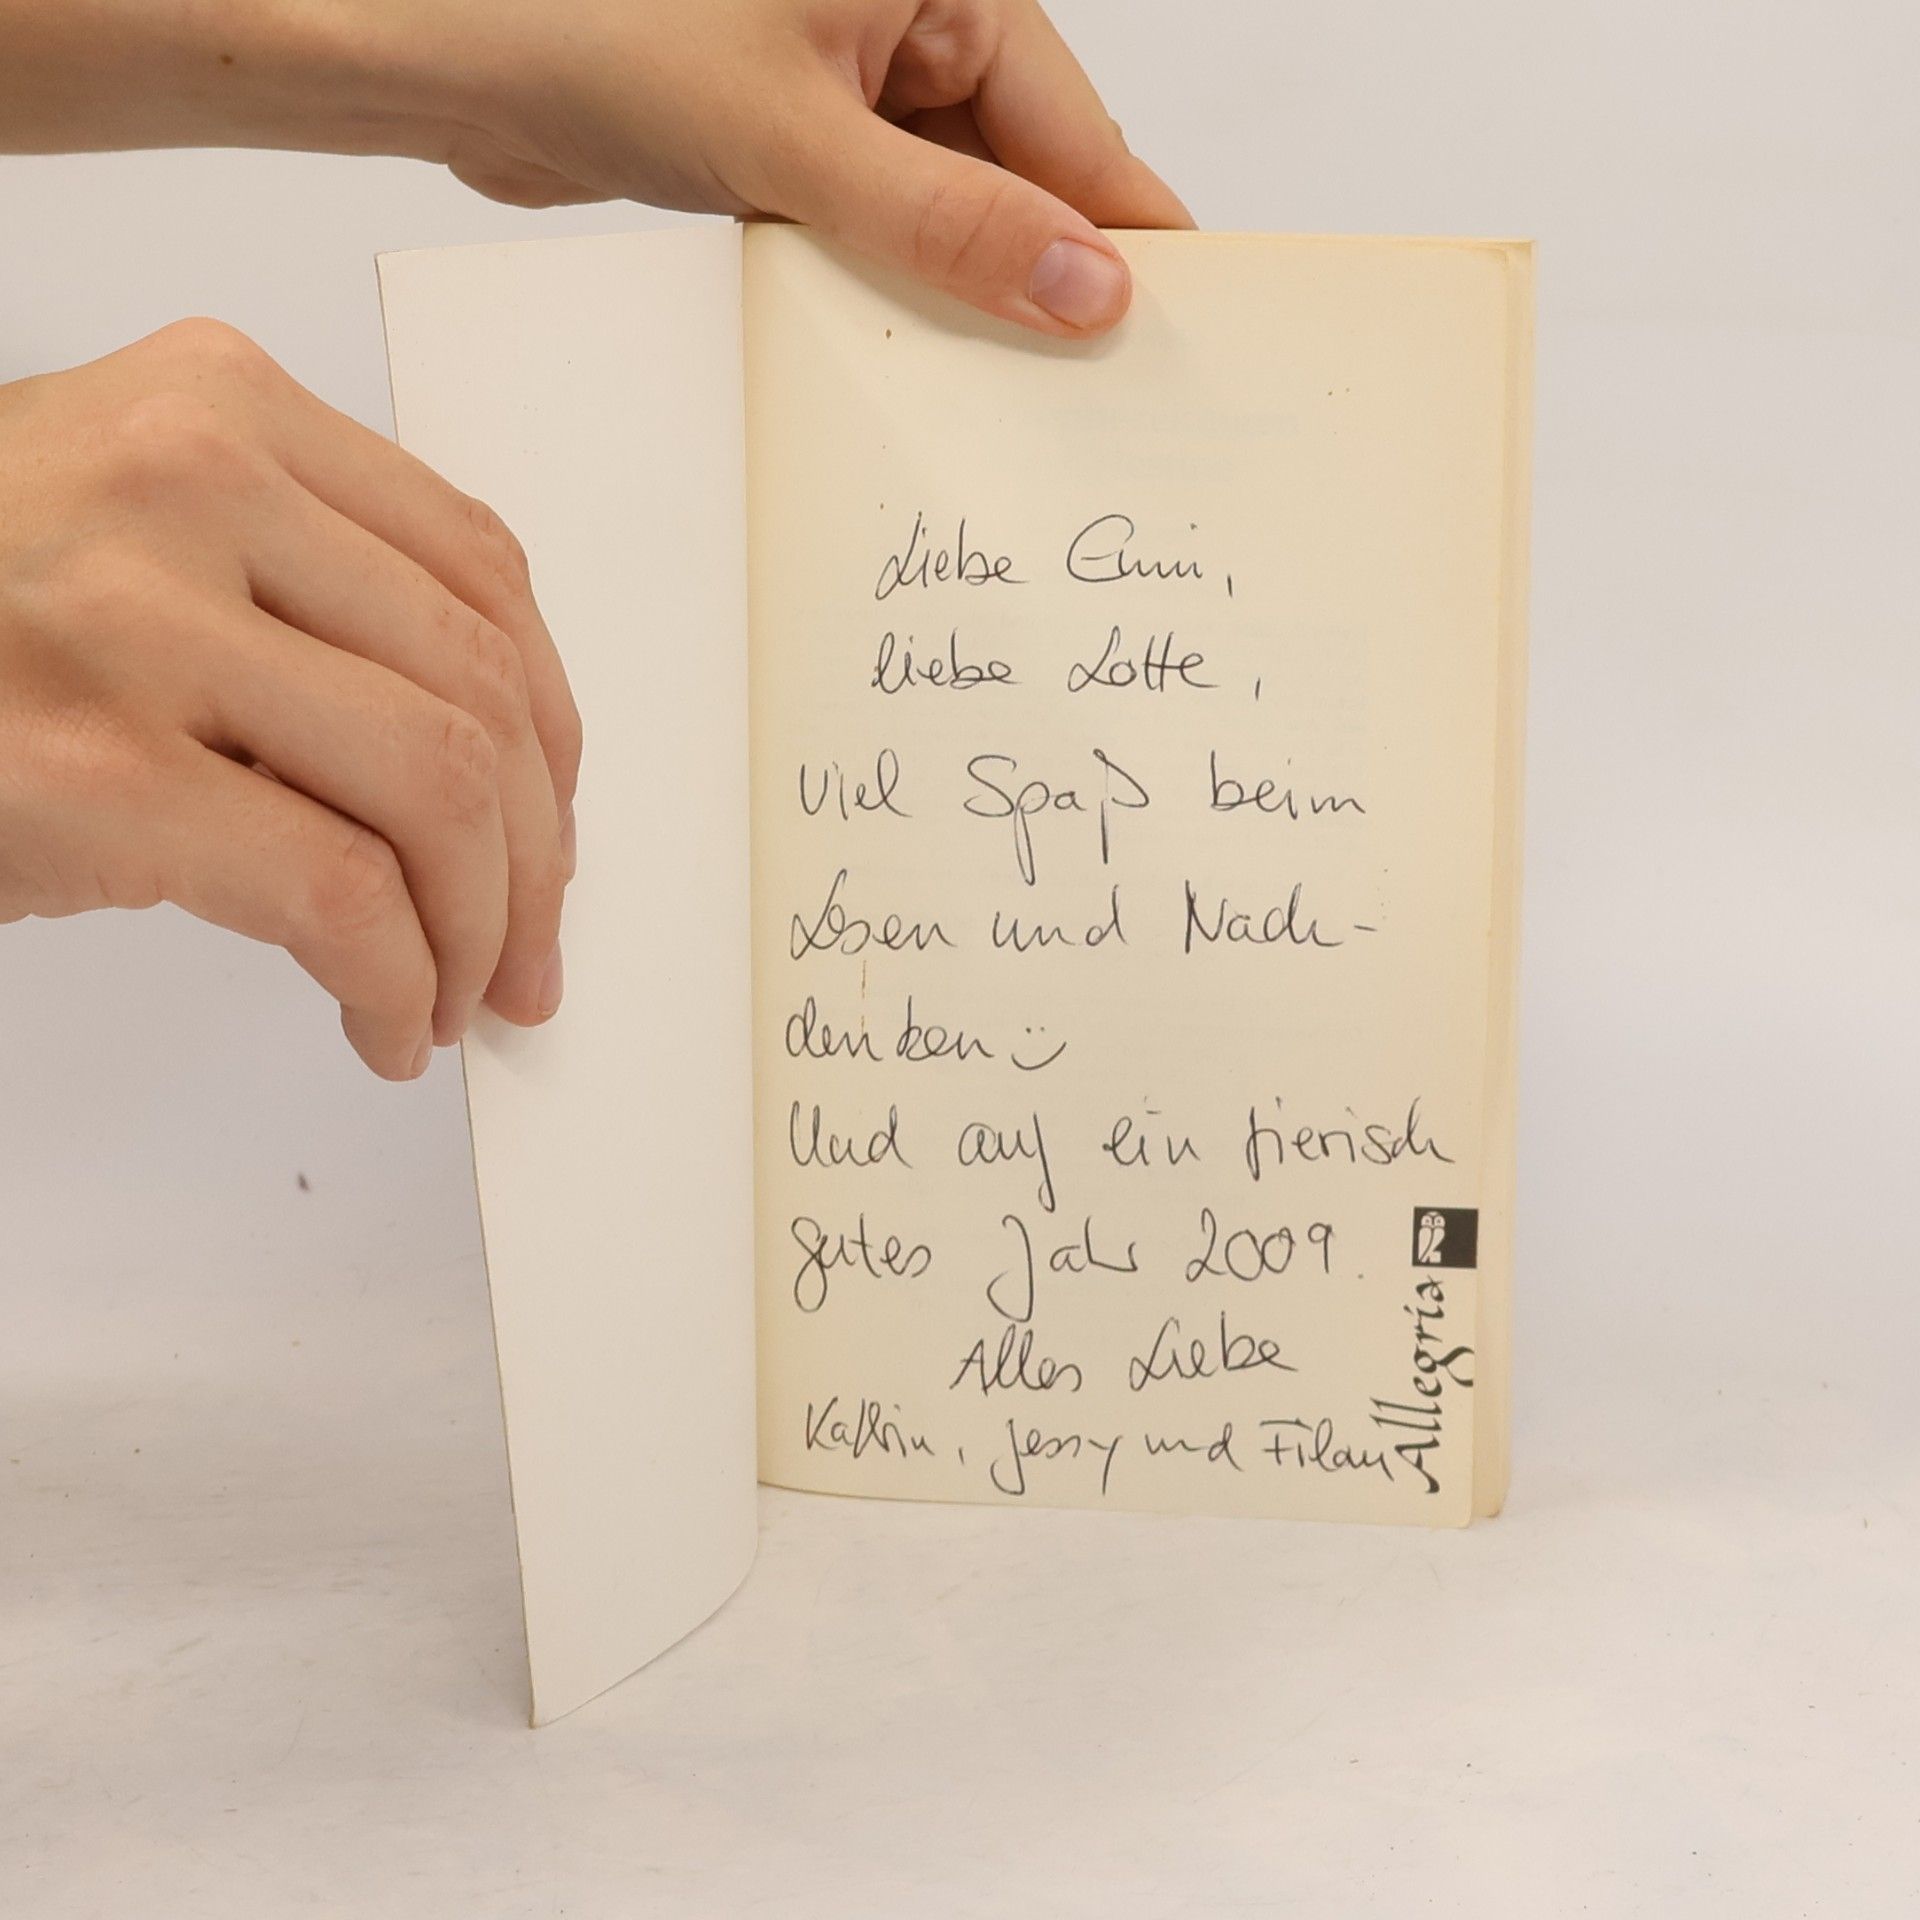 Liebe Emi,
liebe Lotte,
viel Spaß beim
Lesen und Nach-
denken :)
Und auf ein tierisch
gutes Jahr 2009.
Alles Liebe
Kathrin, Jessy und
Allegria